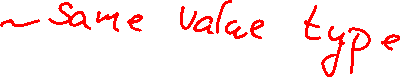 ~same value type